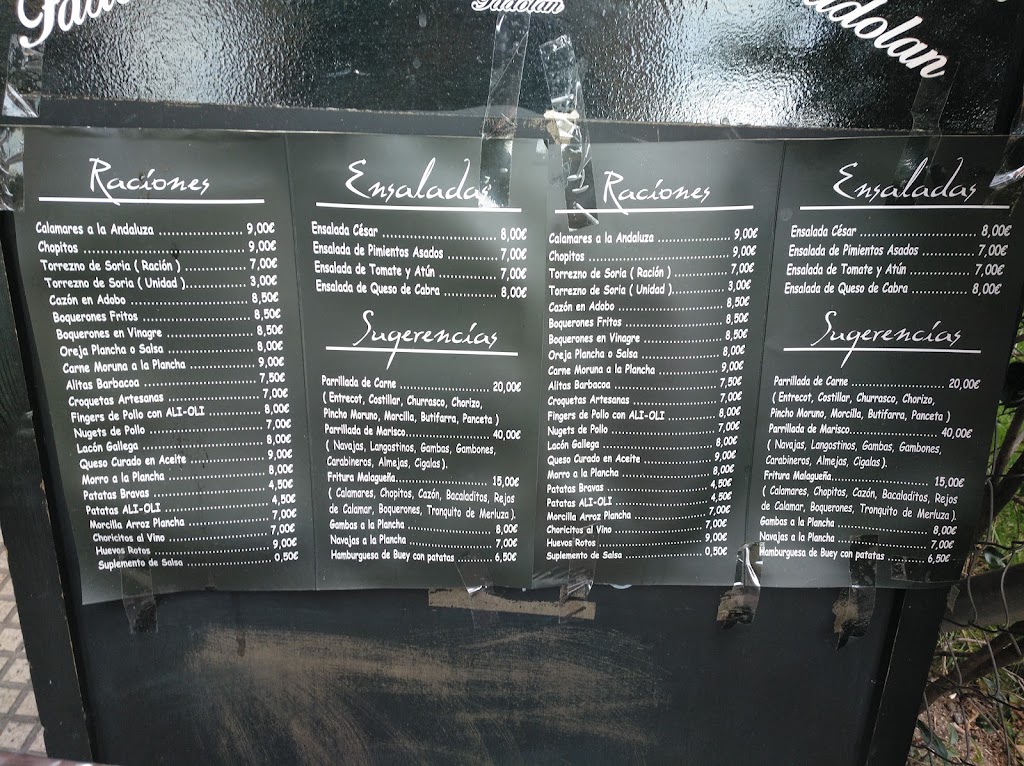 Gadolan
Raciones
Calamares a la Andaluza 9,00€
Chopitos 9,00€
Torrezno de Soria ( Ración ) 7,00€
Torrezno de Soria ( Unidad ) 3,00€
Cazón en Adobo 8,50€
Boquerones Fritos 8,50€
Boquerones en Vinagre 8,50€
Oreja Plancha o Salsa 8,00€
Carne Moruna a la Plancha 9,00€
Alitas Barbacoa 7,50€
Croquetas Artesanas 7,00€
Fingers de Pollo con ALI-OLI 8,00€
Nugets de Pollo 7,00€
Lacón Gallega 8,00€
Queso Curado en Aceite 9,00€
Morro a la Plancha 8,00€
Patatas Bravas 4,50€
Patatas ALI-OLI 4,50€
Morcilla Arroz Plancha 7,00€
Choricitos al Vino 7,00€
Huevos Rotos 9,00€
Suplemento de Salsa 0,50€
Ensaladas
Ensalada César 8,00€
Ensalada de Pimientos Asados 7,00€
Ensalada de Tomate y Atún 7,00€
Ensalada de Queso de Cabra 8,00€
Sugerencias
Parrillada de Carne 20,00€
( Entrecot, Costillar, Churrasco, Chorizo,
Pincho Moruno, Morcilla, Butifarra, Panceta )
Parrillada de Marisco 40,00€
( Navajas, Langostinos, Gambas, Gambones,
Carabineros, Almejas, Cigalas ).
Fritura Malagueña 15,00€
( Calamares, Chopitos, Cazón, Bacaladitos, Rejos
de Calamar, Boquerones, Tronquito de Merluza ).
Gambas a la Plancha 8,00€
Navajas a la Plancha 7,00€
Hamburguesa de Buey con patatas 6,50€
Raciones
Calamares a la Andaluza 9,00€
Chopitos 9,00€
Torrezno de Soria ( Ración ) 7,00€
Torrezno de Soria ( Unidad ) 3,00€
Cazón en Adobo 8,50€
Boquerones Fritos 8,50€
Boquerones en Vinagre 8,50€
Oreja Plancha o Salsa 8,00€
Carne Moruna a la Plancha 9,00€
Alitas Barbacoa 7,50€
Croquetas Artesanas 7,00€
Fingers de Pollo con ALI-OLI 8,00€
Nugets de Pollo 7,00€
Lacón Gallega 8,00€
Queso Curado en Aceite 9,00€
Morro a la Plancha 8,00€
Patatas Bravas 4,50€
Patatas ALI-OLI 4,50€
Morcilla Arroz Plancha 7,00€
Choricitos al Vino 7,00€
Huevos Rotos 9,00€
Suplemento de Salsa 0,50€
Ensaladas
Ensalada César 8,00€
Ensalada de Pimientos Asados 7,00€
Ensalada de Tomate y Atún 7,00€
Ensalada de Queso de Cabra 8,00€
Sugerencias
Parrillada de Carne 20,00€
( Entrecot, Costillar, Churrasco, Chorizo,
Pincho Moruno, Morcilla, Butifarra, Panceta )
Parrillada de Marisco 40,00€
( Navajas, Langostinos, Gambas, Gambones,
Carabineros, Almejas, Cigalas ).
Fritura Malagueña 15,00€
( Calamares, Chopitos, Cazón, Bacaladitos, Rejos
de Calamar, Boquerones, Tronquito de Merluza ).
Gambas a la Plancha 8,00€
Navajas a la Plancha 7,00€
Hamburguesa de Buey con patatas 6,50€